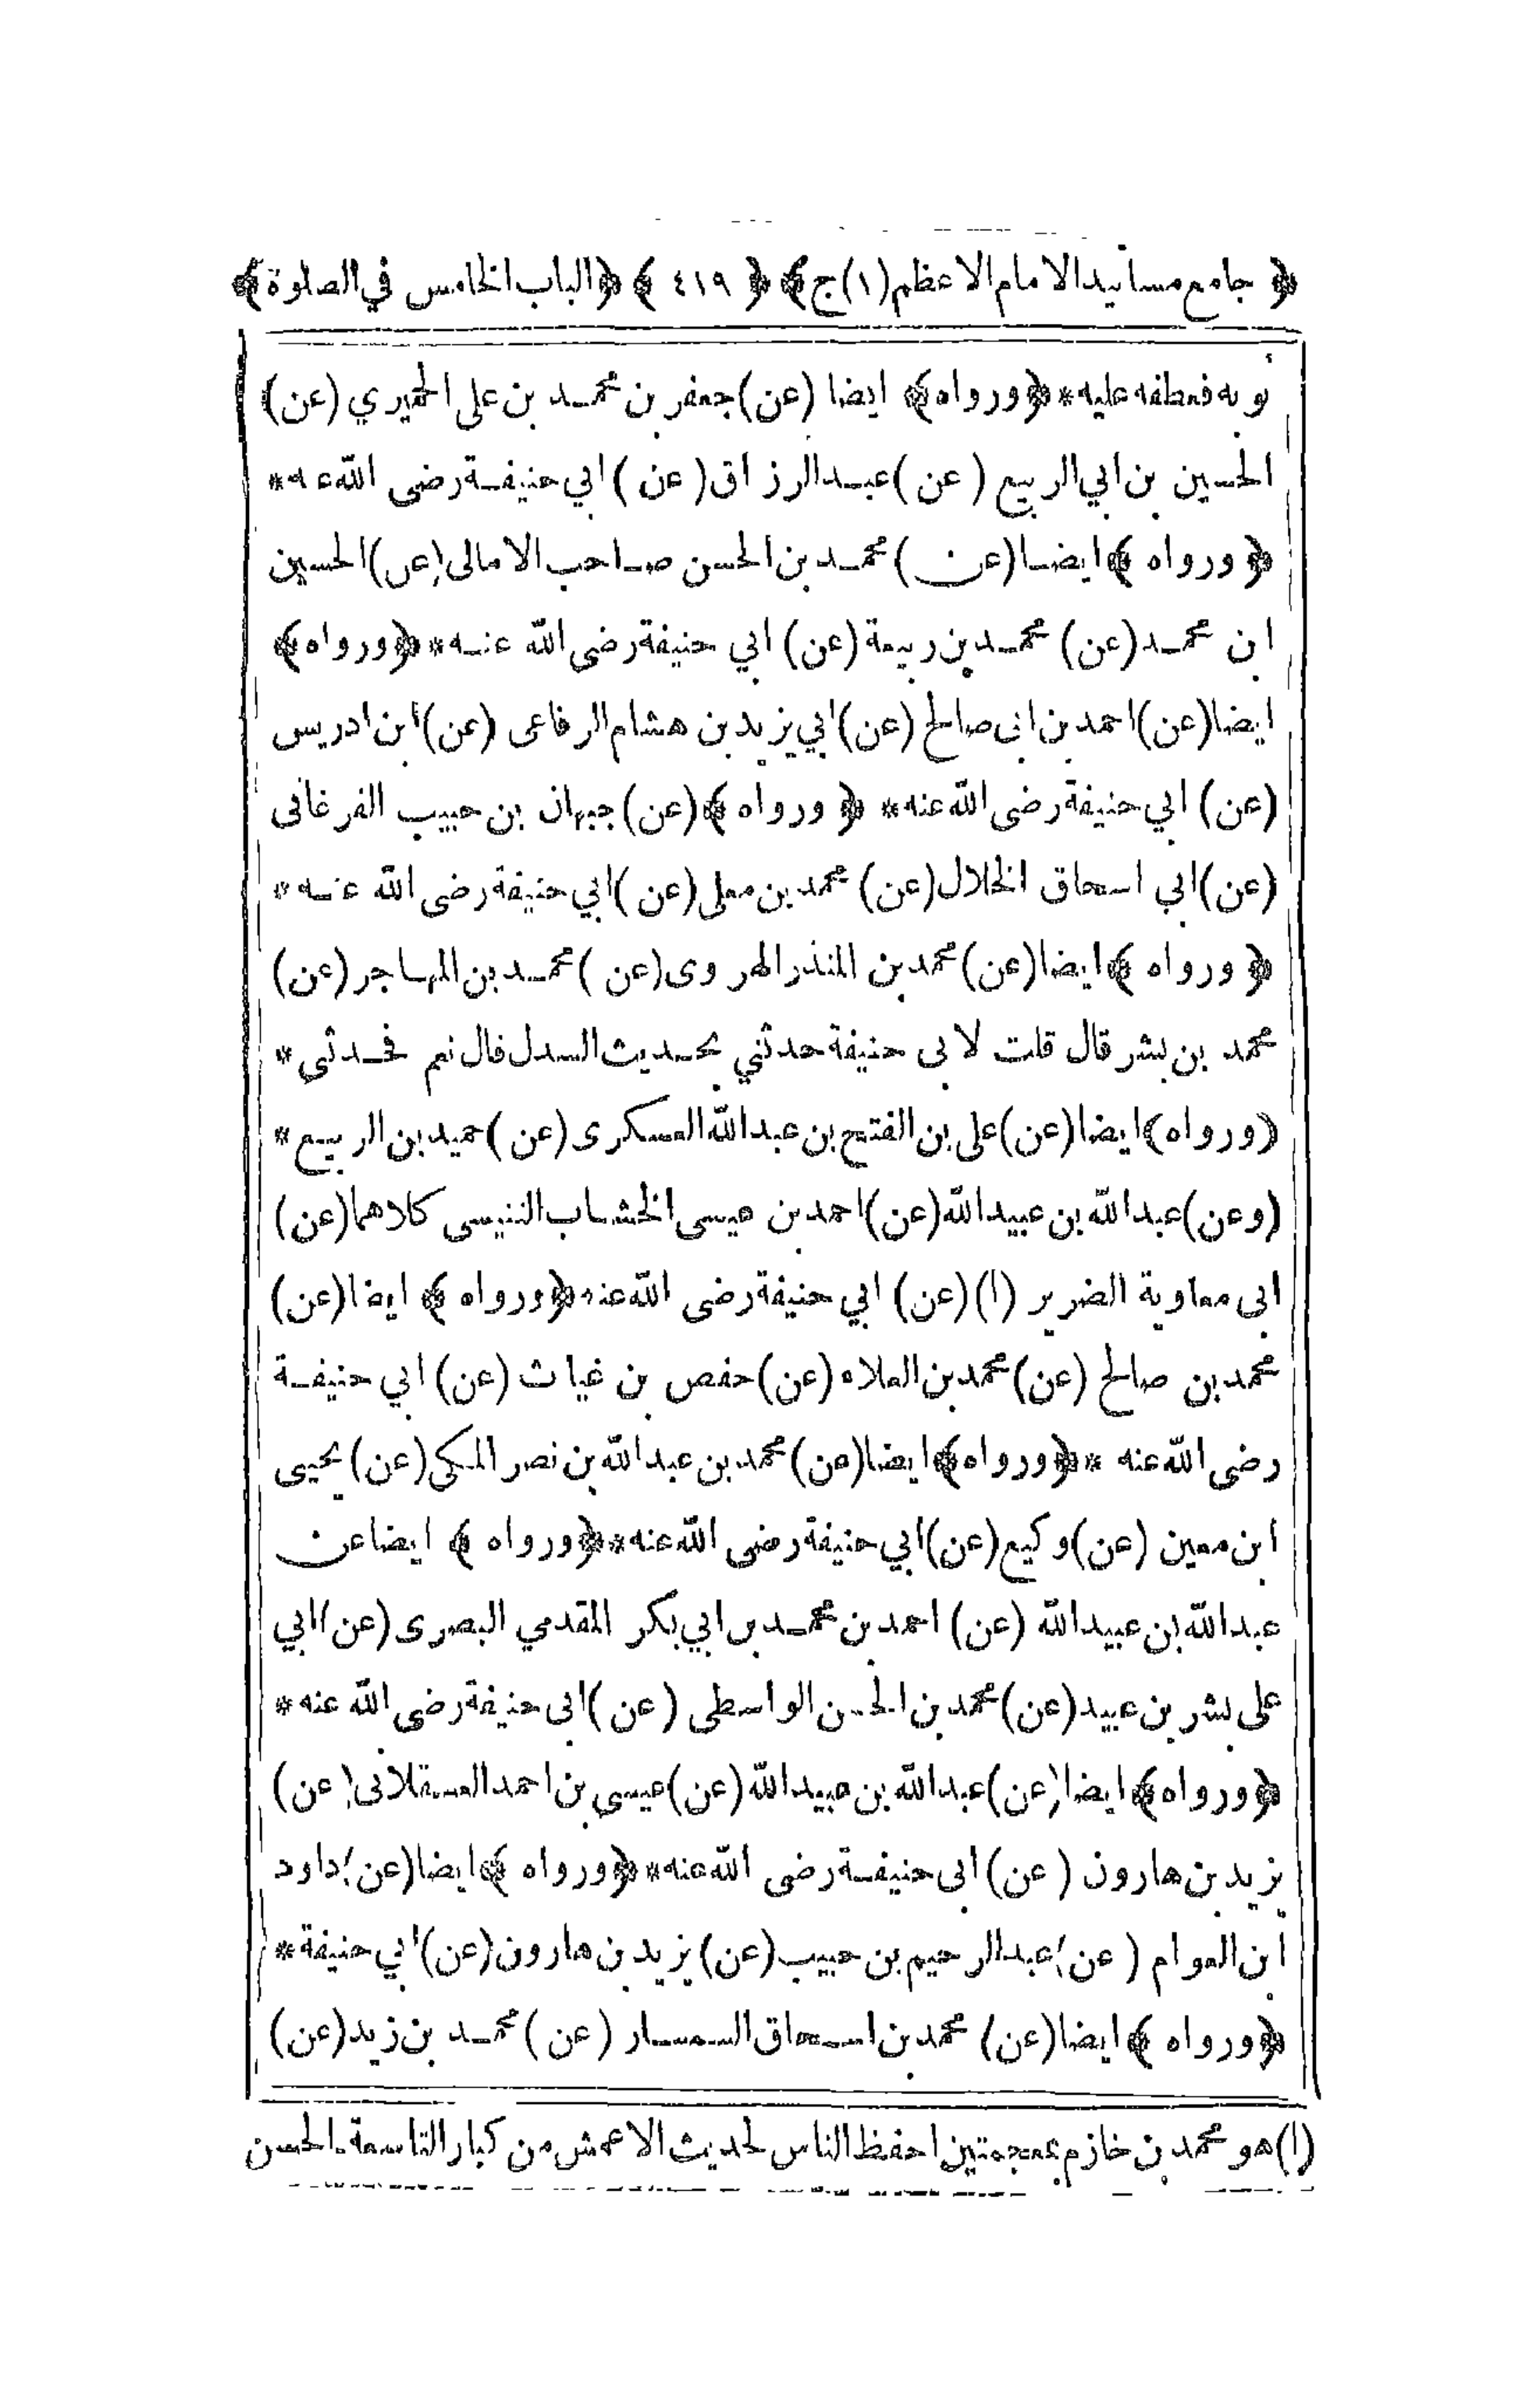 ﴿ جامع مسانيد الامام الاعظم (١) ج﴾ ﴿ ٤١٩ ﴾ ﴿الباب الخامس في الصلوة﴾
ثوبه فعطفه عليه * ﴿ورواه﴾ ايضا (عن) جعفر بن محمد بن على الحميري (عن)
الحسين بن ابي الربيع (عن) عبد الرزاق (عن) ابي حنيفة رضى الله عنه *
﴿ورواه﴾ ايضا (عن) محمد بن الحسن صاحب الامالى (عن) الحسين
ابن محمد (عن) محمد بن ربيعة (عن) ابي حنيفة رضى الله عنه * ﴿ورواه﴾
ايضا (عن) احمد بن ابى صالح (عن) ابي يزيد بن هشام الرفاعى (عن) ابن ادريس
(عن) ابي حنيفة رضى الله عنه * ﴿ورواه﴾ (عن) جبهان بن حبيب الفرغانى
(عن) ابي اسحاق الخلال (عن) محمد بن معلى (عن) ابي حنيفة رضى الله عنه *
﴿ورواه﴾ ايضا (عن) محمد بن المنذر الهروى (عن) محمد بن المهاجر (عن)
محمد بن بشر قال قلت لابى حنيفة حدثني بحديث السدل قال نعم فحدثنى *
﴿ورواه﴾ ايضا (عن) على بن الفتح بن عبد الله العسكرى (عن) حميد بن الربيع *
(وعن) عبد الله بن عبيد الله (عن) احمد بن عيسى الخشاب التنيسى كلاهما (عن)
ابى معاوية الضرير (١) (عن) ابي حنيفة رضى الله عنه ﴿ورواه﴾ ايضا (عن)
محمد بن صالح (عن) محمد بن العلاء (عن) حفص بن غياث (عن) ابي حنيفة
رضى الله عنه * ﴿ورواه﴾ ايضا (عن) محمد بن عبد الله بن نصر المكى (عن) يحيى
ابن معين (عن) وكيع (عن) ابي حنيفة رضى الله عنه * ﴿ورواه﴾ ايضا عن
عبد الله بن عبيد الله (عن) احمد بن محمد بن ابي بكر المقدمي البصرى (عن) ابي
على بشر بن عبيد (عن) محمد بن الحسن الواسطى (عن) ابى حنيفة رضى الله عنه *
﴿ورواه﴾ ايضا (عن) عبد الله بن عبيد الله (عن) عيسى بن احمد العسقلانى (عن)
يزيد بن هارون (عن) ابى حنيفة رضى الله عنه * ﴿ورواه﴾ ايضا (عن) داود
ابن العوام (عن) عبد الرحيم بن حبيب (عن) يزيد بن هارون (عن) ابي حنيفة *
﴿ورواه﴾ ايضا (عن) محمد بن اسحاق السمسار (عن) محمد بن زيد (عن)
(١) هو محمد بن خازم بمعجمتين احفظ الناس لحديث الاعمش من كبار التاسعة. الحسن